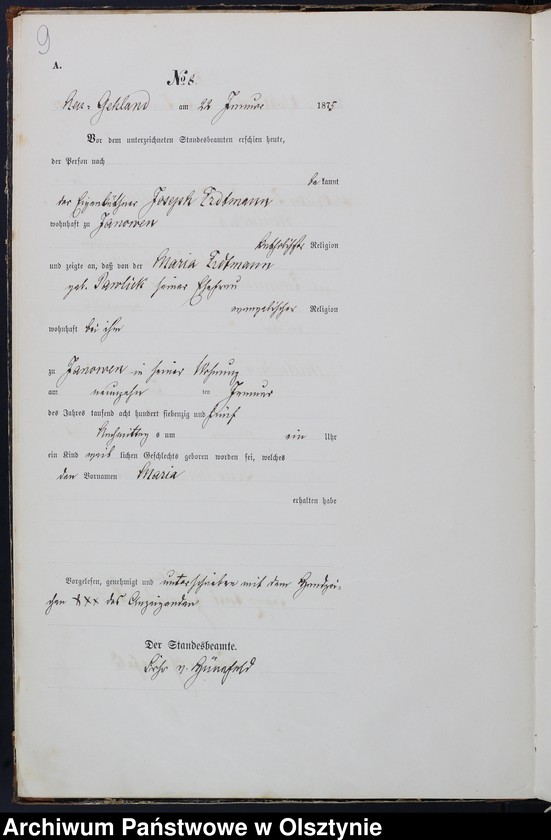 9
A.
No 8.
Neu-Gehland am 22 Januar 1875
Vor dem unterzeichneten Standesbeamten erschien heute,
der Person nach
bekannt
der Eigenkäthner Joseph Erdtmann
wohnhaft zu Janowen
katholischer Religion
und zeigte an, daß von der Maria Erdtmann
geb. Pawlick seiner Ehefrau
evangelischer Religion
wohnhaft bei ihm
zu Janowen in seiner Wohnung
am neunzehn ten Januar
des Jahres tausend acht hundert siebenzig und fünf
Nachmittags um ein Uhr
ein Kind weiblichen Geschlechts geboren worden sei, welches
den Vornamen Maria
erhalten habe
Vorgelesen, genehmigt und unterschrieben mit dem Handzei-
chen XXX des Anzeigenden
Der Standesbeamte.
Frhr v. Hünefeld
Archiwum Państwowe w Olsztynie